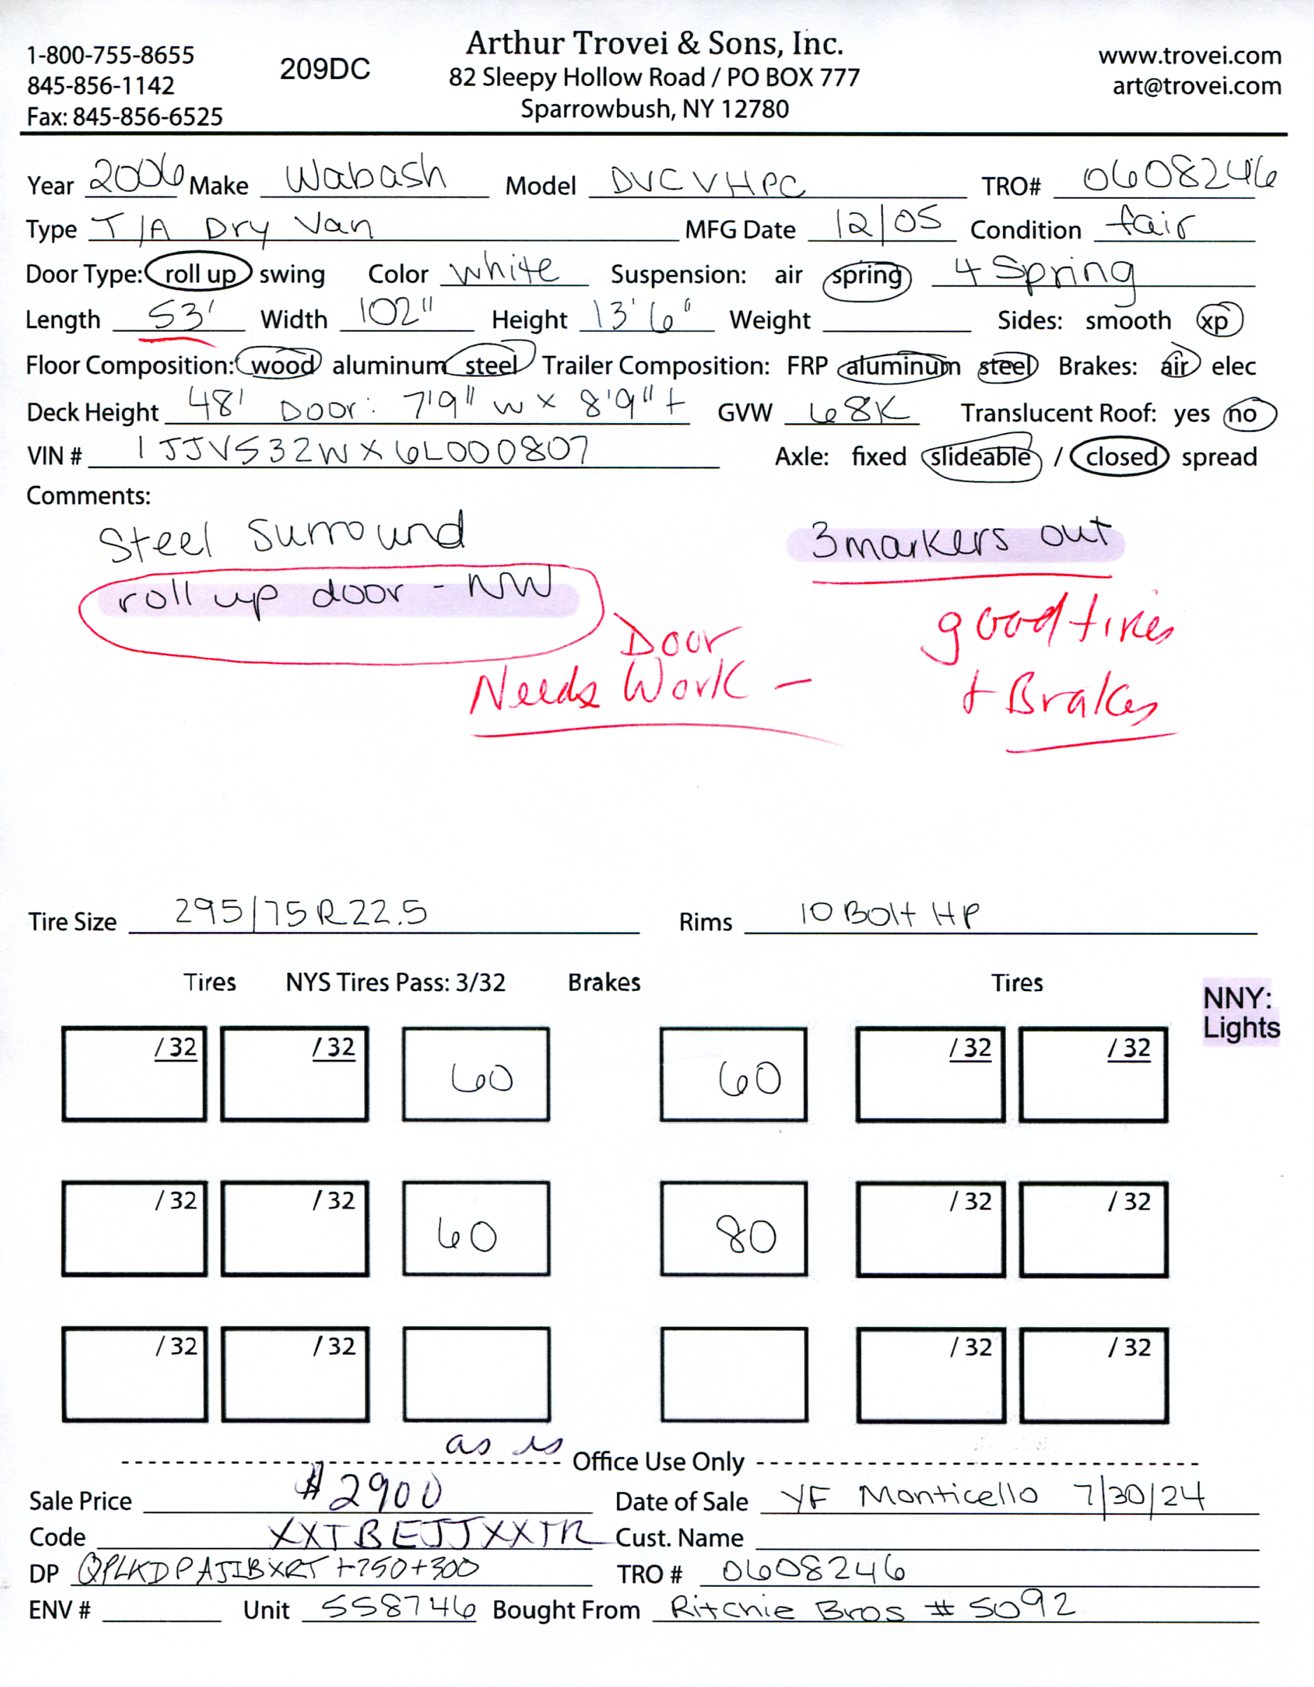 1-800-755-8655
845-856-1142
Fax: 845-856-6525
209DC
Arthur Trovei & Sons, Inc.
82 Sleepy Hollow Road / PO BOX 777
Sparrowbush, NY 12780
www.trovei.com
art@trovei.com
Year 2006 Make Wabash Model DVCVHPC TRO# 0608246
Type T/A Dry Van MFG Date 12/05 Condition fair
Door Type: roll up swing Color white Suspension: air spring 4 Spring
Length 53' Width 102" Height 13'6" Weight Sides: smooth xp
Floor Composition: wood aluminum steel Trailer Composition: FRP aluminum steel Brakes: air elec
Deck Height 48' Door: 7'9" w x 8'9" t GVW 68K Translucent Roof: yes no
VIN # 1JJV532WX6L000807 Axle: fixed slideable / closed spread
Comments:
Steel Surround
3 markers out
roll up door - NW
Door
Needs Work -
good tires
+ Brakes
Tire Size 295/75R22.5 Rims 10 Bolt HP
Tires NYS Tires Pass: 3/32 Brakes Tires
NNY:
Lights
/ 32 / 32 60 60 / 32 / 32
/ 32 / 32 60 80 / 32 / 32
/ 32 / 32 / 32 / 32
as is
Office Use Only
Sale Price $2900 Date of Sale YF Monticello 7/30/24
Code XXTBEJJXXTR Cust. Name
DP QPLKDPAJIBXRT +750+300 TRO # 0608246
ENV # Unit 558746 Bought From Ritchie Bros # 5092